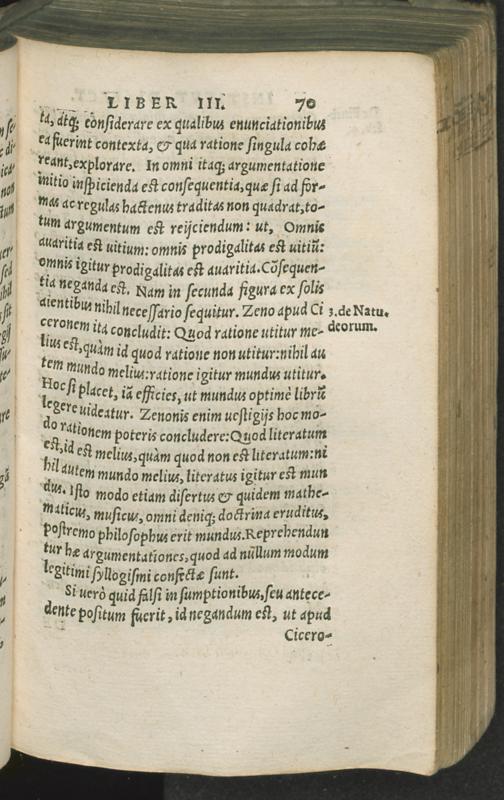 LIBER III. 70
ta, atq; cōnsiderare ex qualibus enunciationibus
ea fuerint contexta, & qua ratione singula cohæ
reant, explorare. In omni itaq; argumentatione
initio inspicienda est consequentia, quæ si ad for-
mas ac regulas hactenus traditas non quadrat, to-
tum argumentum est reijciendum: ut, Omnis
auaritia est uitium: omnis prodigalitas est uitiū:
omnis igitur prodigalitas est auaritia. Cōsequen-
tia neganda est. Nam in secunda figura ex solis
aientibus nihil necessario sequitur. Zeno apud Ci
3. de Natu.
deorum.
ceronem ita concludit: Quod ratione utitur me-
lius est, quàm id quod ratione non utitur: nihil au
tem mundo melius: ratione igitur mundus utitur.
Hoc si placet, iā efficies, ut mundus optimè librū
legere uideatur. Zenonis enim uestigijs hoc mo-
do rationem poteris concludere: Quod literatum
est, id est melius, quàm quod non est literatum: ni
hil autem mundo melius, literatus igitur est mun
dus. Isto modo etiam disertus & quidem mathe-
maticus, musicus, omni deniq; doctrina eruditus,
postremo philosophus erit mundus. Reprehendun
tur hæ argumentationes, quod ad nullum modum
legitimi syllogismi confectæ sunt.
Si uerò quid falsi in sumptionibus, seu antece-
dente positum fuerit, id negandum est, ut apud
Cicero-